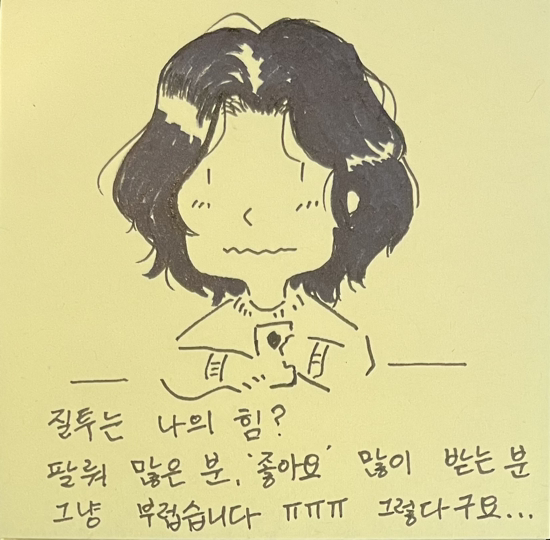 질투는 나의 힘?
팔뤄 많은 분, '좋아요' 많이 받는 분
그냥 부럽습니다 ㅠㅠㅠ 그렇다구요...